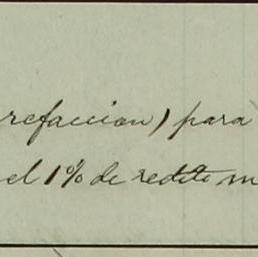 refaccion) para
el 1% de redito m